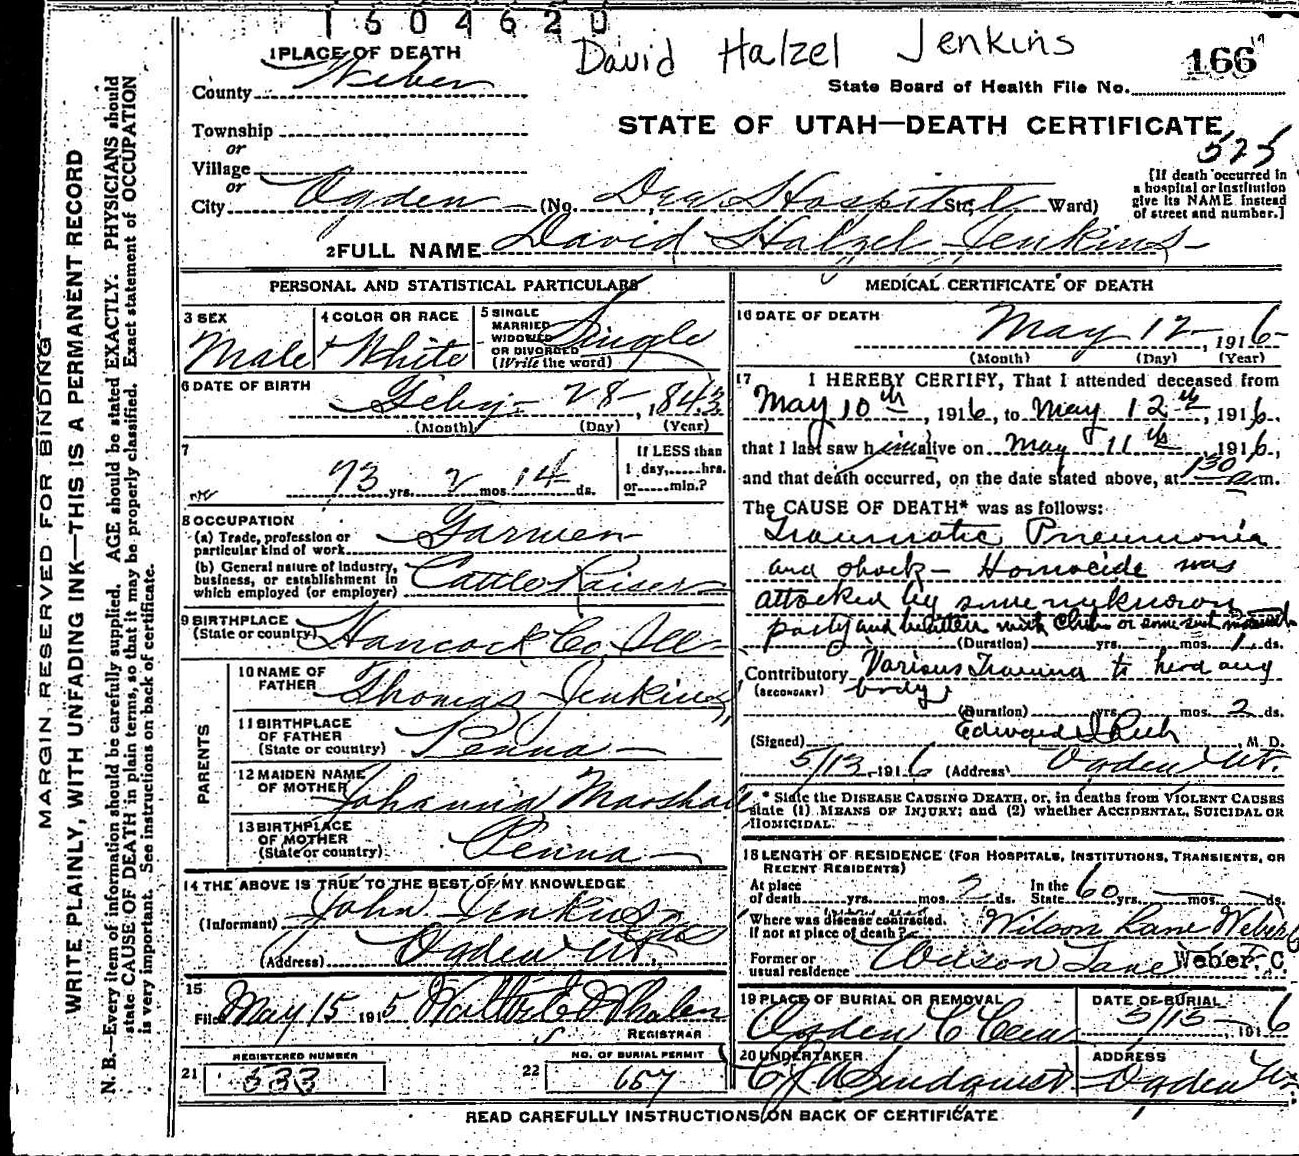 1604620
David Halzel Jenkins
166
1 PLACE OF DEATH
County Weber
State Board of Health File No.
Township
or
STATE OF UTAH—DEATH CERTIFICATE
525
Village
or
City Ogden (No. Dee Hospital St.; Ward)
[If death occurred in a hospital or institution give its NAME instead of street and number.]
2 FULL NAME David Halzel Jenkins
MARGIN RESERVED FOR BINDING
WRITE PLAINLY, WITH UNFADING INK—THIS IS A PERMANENT RECORD
N. B.—Every item of information should be carefully supplied. AGE should be stated EXACTLY. PHYSICIANS should
state CAUSE OF DEATH in plain terms, so that it may be properly classified. Exact statement of OCCUPATION
is very important. See instructions on back of certificate.
PERSONAL AND STATISTICAL PARTICULARS
3 SEX
Male
4 COLOR OR RACE
White
5 SINGLE
MARRIED
WIDOWED
OR DIVORCED
(Write the word)
Single
6 DATE OF BIRTH
Feby 28 1843
(Month) (Day) (Year)
7
73 yrs. 2 mos. 14 ds.
If LESS than
1 day, hrs.
or min.?
8 OCCUPATION
(a) Trade, profession or
particular kind of work Farmer
(b) General nature of industry,
business, or establishment in
which employed (or employer) Cattle Raiser
9 BIRTHPLACE
(State or country) Hancock Co. Ill
PARENTS
10 NAME OF
FATHER Thomas Jenkins
11 BIRTHPLACE
OF FATHER
(State or country) Penna
12 MAIDEN NAME
OF MOTHER Johanna Marshal
13 BIRTHPLACE
OF MOTHER
(State or country) Penna
14 THE ABOVE IS TRUE TO THE BEST OF MY KNOWLEDGE
(Informant) John Jenkins
(Address) Ogden Ut.
15
Filed May 15 1915
REGISTRAR
REGISTERED NUMBER
21 533
NO. OF BURIAL PERMIT
22 157
MEDICAL CERTIFICATE OF DEATH
16 DATE OF DEATH
May 12, 1916
(Month) (Day) (Year)
17 I HEREBY CERTIFY, That I attended deceased from
May 10th, 1916, to May 12th, 1916.
that I last saw him alive on May 11th 1916,
and that death occurred, on the date stated above, at 130 a.m.
The CAUSE OF DEATH* was as follows:
Traumatic Pneumonia
and shock— Homocide was
attacked by some unknown
party and beatten with Club or some such
(Duration) yrs. mos. 1 ds.
Contributory Various Trauma to head any
(SECONDARY) body
(Duration) yrs. mos. 2 ds.
(Signed) Edward I Rich M. D.
5/13, 1916 (Address) Ogden Ut.
* State the DISEASE CAUSING DEATH, or, in deaths from VIOLENT CAUSES
state (1) MEANS OF INJURY; and (2) whether ACCIDENTAL, SUICIDAL OR
HOMICIDAL.
18 LENGTH OF RESIDENCE (FOR HOSPITALS, INSTITUTIONS, TRANSIENTS, OR
RECENT RESIDENTS)
At place
of death yrs. mos. 2 ds.
In the
State 60 yrs. mos. ds.
Where was disease contracted,
If not at place of death? Wilson Lane Weber Co
Former or
usual residence Wilson Lane Weber. C.
19 PLACE OF BURIAL OR REMOVAL
Ogden C Cem
DATE OF BURIAL
5/15 1916
20 UNDERTAKER
Lindquist
ADDRESS
Ogden Ut.
READ CAREFULLY INSTRUCTIONS ON BACK OF CERTIFICATE